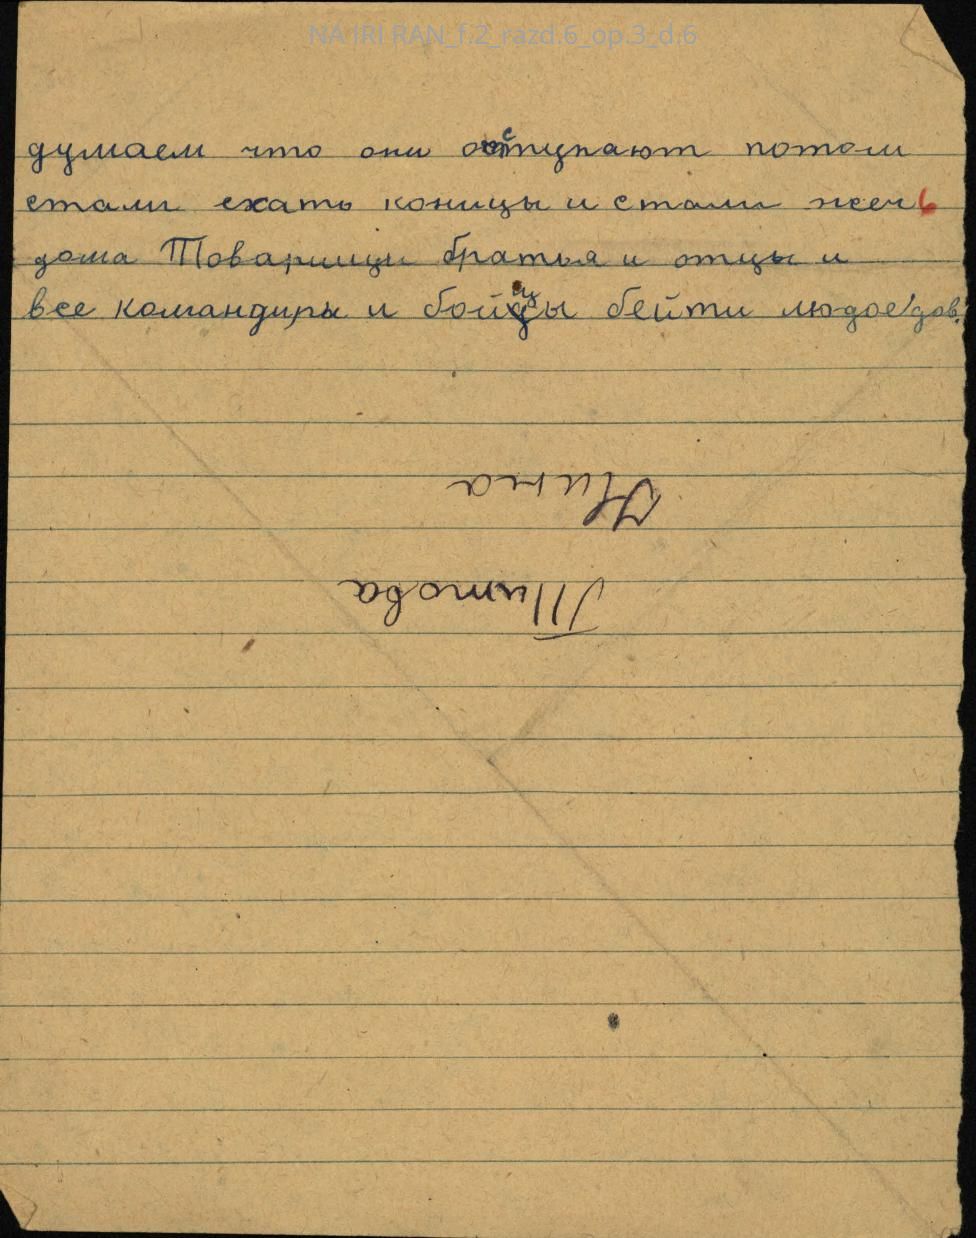 NA IRI RAN_f.2_razd.6_op.3_d.6
думаем что они отступают потом
стали ехать коницы и стали жечь
дома Товарищи братья и отцы и
все командиры и бойцы бейти людоедов.
Нина
Титова